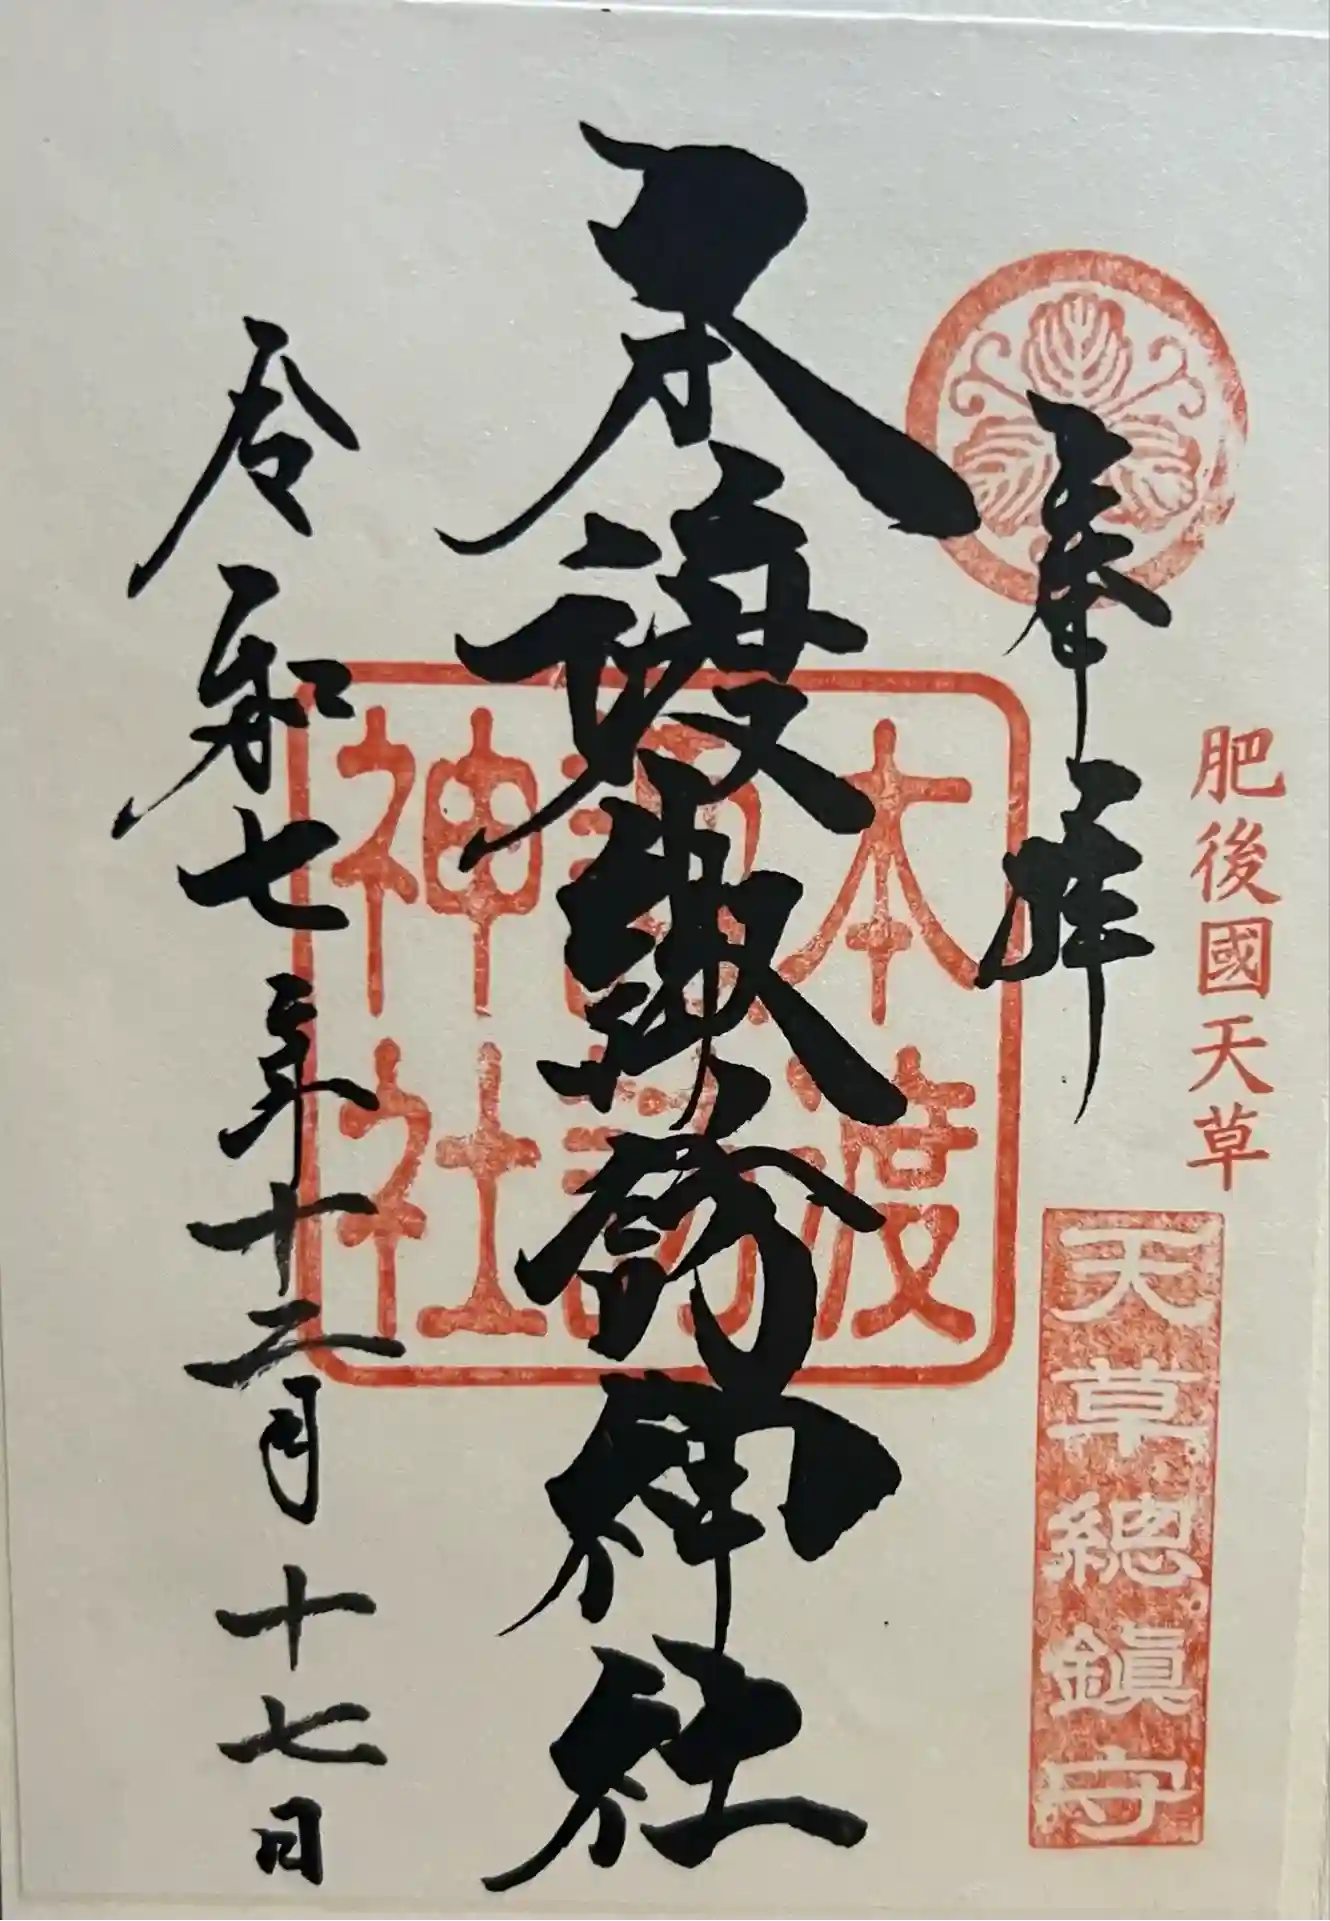 肥後國天草
天草總鎮守
奉拝
本渡諏訪神社
本渡
諏訪
神社
令和七年十二月十七日